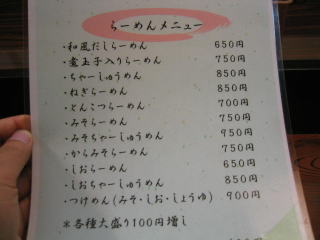 らーめんメニュー
・和風だしらーめん 650円
・煮玉子入りらーめん 750円
・ちゃーしゅうめん 850円
・ねぎらーめん 850円
・とんこつらーめん 700円
・みそらーめん 750円
・みそちゃーしゅうめん 950円
・からみそらーめん 750円
・しおらーめん 650円
・しおちゃーしゅうめん 850円
・つけめん(みそ・しお・しょうゆ) 900円
*各種大盛り100円増し